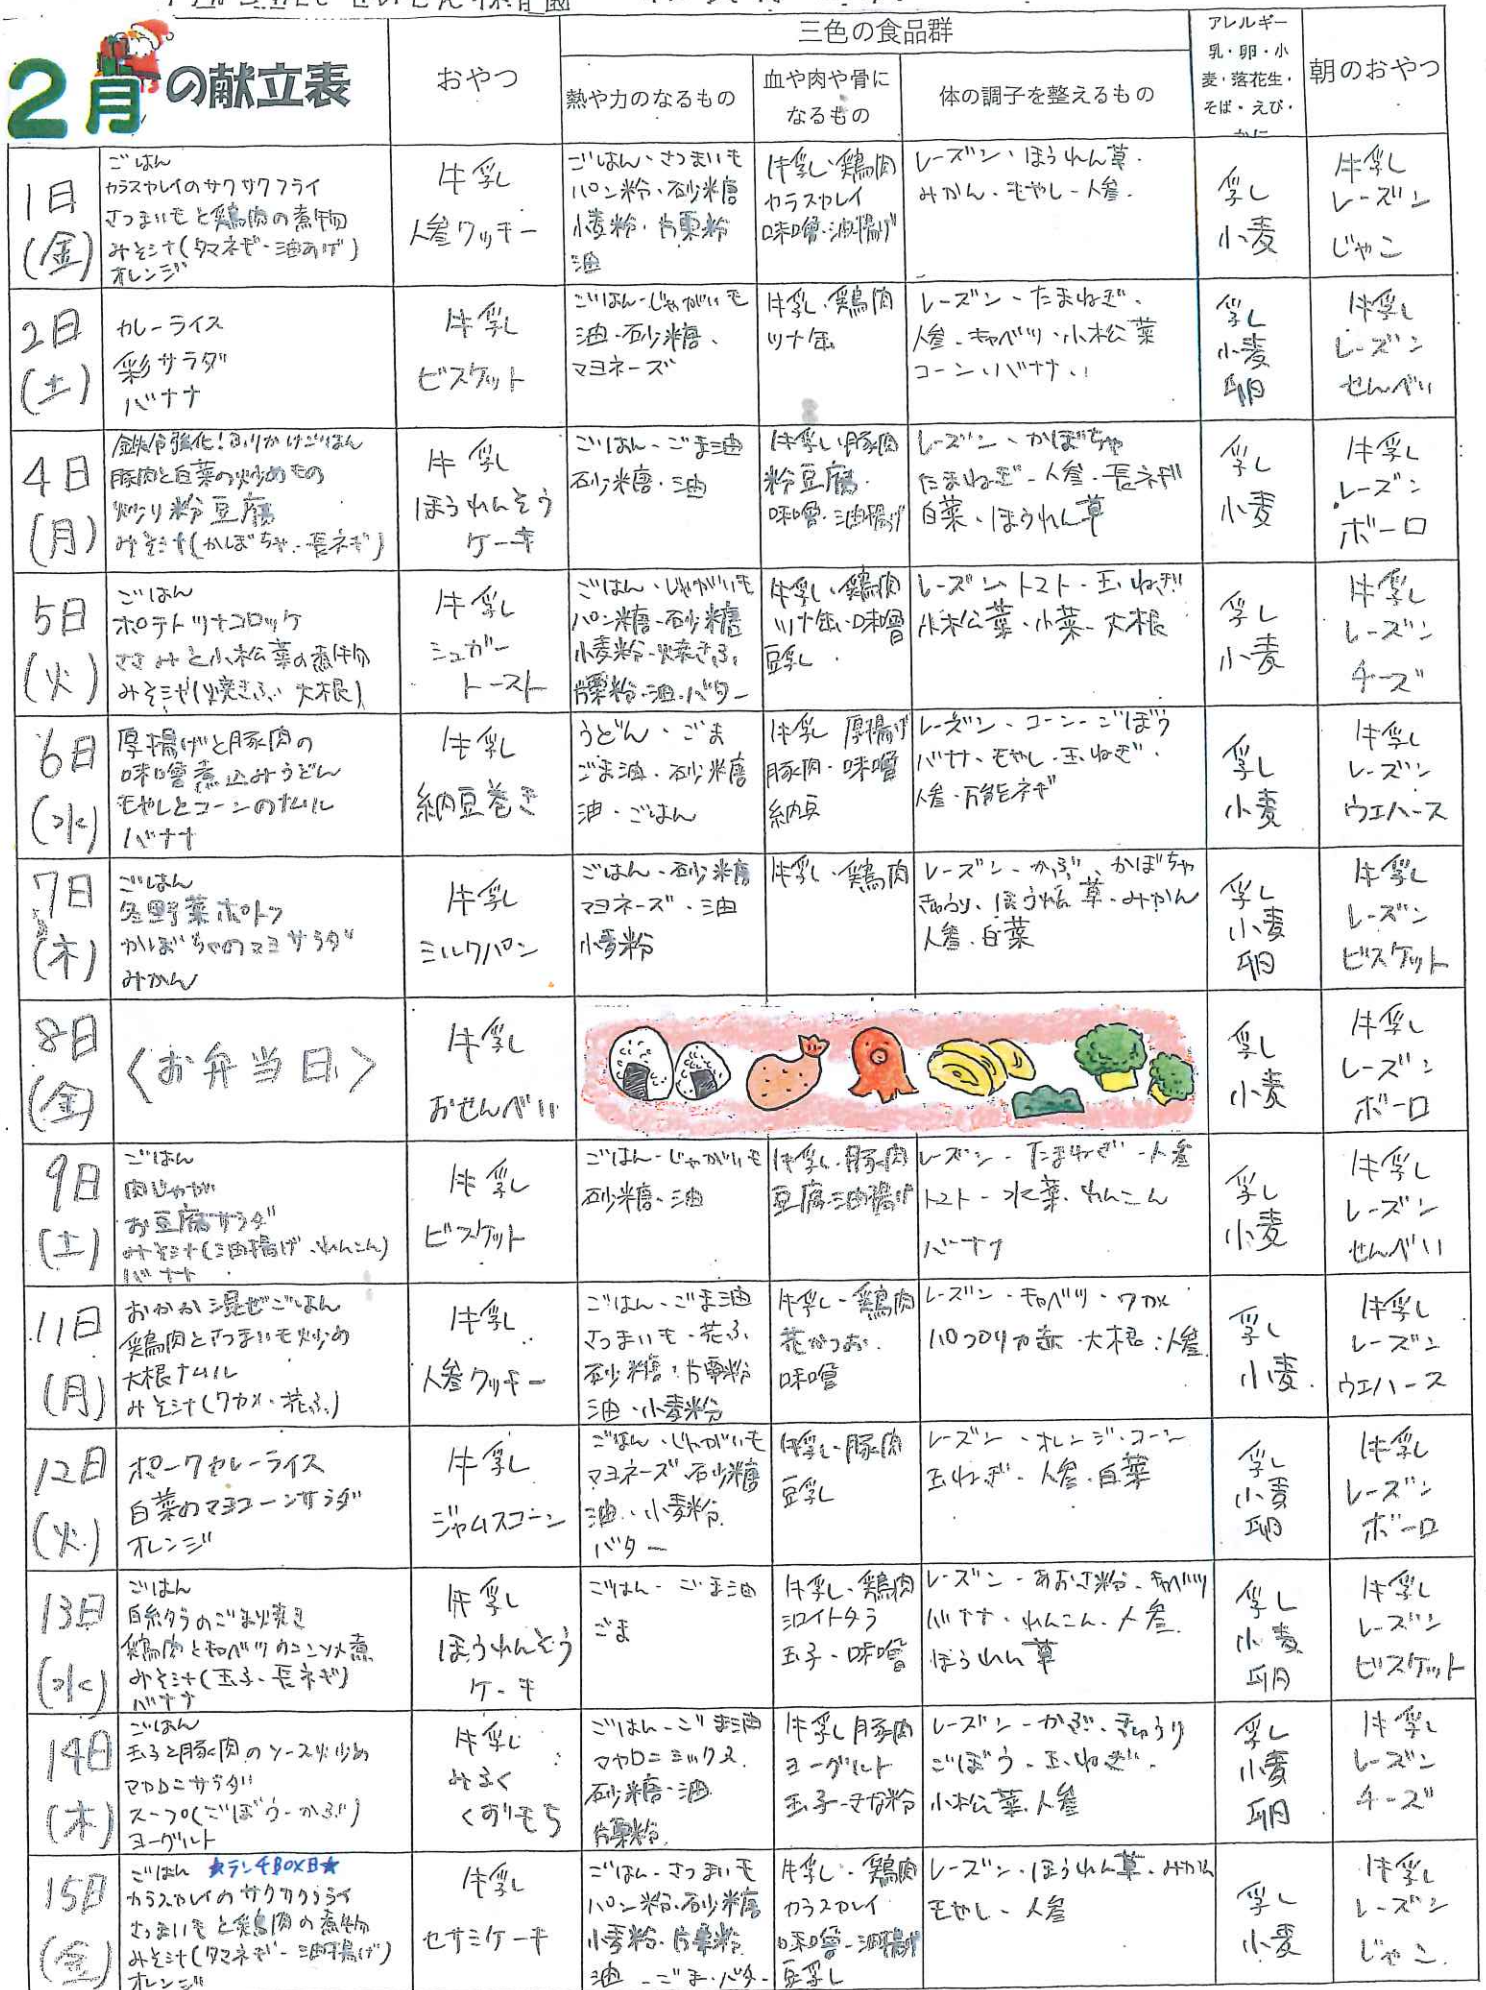 2月の献立表
おやつ
三色の食品群
熱や力のなるもの
血や肉や骨に
なるもの
体の調子を整えるもの
アレルギー
乳・卵・小
麦・落花生・
そば・えび・
かに
朝のおやつ
1日
(金)
ごはん
カラスカレイのサクサクフライ
さつまいもと鶏肉の煮物
みそ汁(タマネギ・油あげ)
オレンジ
牛乳
人参クッキー
ごはん・さつまいも
パン粉・砂糖
小麦粉・片栗粉
油
牛乳・鶏肉
カラスカレイ
味噌・油揚げ
レーズン・ほうれん草・
みかん・もやし-人参・
乳
小麦
牛乳
レーズン
じゃこ
2日
(土)
カレーライス
彩サラダ
バナナ
牛乳
ビスケット
ごはん-じゃがいも
油・砂糖、
マヨネーズ
牛乳・鶏肉
ツナ缶
レーズン・たまねぎ・
人参・キャベツ・小松菜
コーン・バナナ・
乳
小麦
卵
牛乳
レーズン
せんべい
4日
(月)
鉄分強化!ふりかけごはん
豚肉と白菜の炒めもの
炒り粉豆腐
みそ汁(かぼちゃ・長ネギ)
牛乳
ほうれんそう
ケーキ
ごはん・ごま油
砂糖・油
牛乳・豚肉
粉豆腐・
味噌・油揚げ
レーズン・かぼちゃ
たまねぎ-人参・長ネギ
白菜・ほうれん草
乳
小麦
牛乳
レーズン
ボーロ
5日
(火)
ごはん
ポテトツナコロッケ
ささみと小松菜の煮物
みそ汁(焼きふ・大根)
牛乳
シュガー
トースト
ごはん・じゃがいも
パン糖-砂糖
小麦粉-焼きふ
片栗粉・油・バター
牛乳・鶏肉
ツナ缶・味噌
豆乳
レーズン・トマト・玉ねぎ
小松菜・小菜-大根
乳
小麦
牛乳
レーズン
チーズ
6日
(水)
厚揚げと豚肉の
味噌煮込みうどん
もやしとコーンのナムル
バナナ
牛乳
納豆巻き
うどん・ごま
ごま油・砂糖
油・ごはん
牛乳 厚揚げ
豚肉・味噌
納豆
レーズン・コーン-ごぼう
バナナ・もやし・玉ねぎ・
人参・万能ネギ
乳
小麦
牛乳
レーズン
ウエハース
7日
(木)
ごはん
冬野菜ポトフ
かぼちゃのマヨサラダ
みかん
牛乳
ミルクパン
ごはん・砂糖
マヨネーズ・油
小麦粉
牛乳・鶏肉
レーズン-かぶ、かぼちゃ
きゅうり・ほうれん草・みかん
人参・白菜
乳
小麦
卵
牛乳
レーズン
ビスケット
8日
(金)
〈お弁当日〉
牛乳
おせんべい
乳
小麦
牛乳
レーズン
ボーロ
9日
(土)
ごはん
肉じゃが
お豆腐サラダ
みそ汁(油揚げ・れんこん)
バナナ
牛乳
ビスケット
ごはん-じゃがいも
砂糖・油
牛乳・豚肉
豆腐・油揚げ
レーズン-たまねぎ-人参
トマト-水菜・れんこん
バナナ
乳
小麦
牛乳
レーズン
せんべい
11日
(月)
おかか混ぜごはん
鶏肉とさつまいも炒め
大根ナムル
みそ汁(ワカメ・花ふ)
牛乳
人参クッキー
ごはん・ごま油
さつまいも・花ふ
砂糖・片栗粉
油・小麦粉
牛乳-鶏肉
花かつお・
味噌
レーズン・キャベツ・ワカメ
・大根・人参
乳
小麦
牛乳
レーズン
ウエハース
12日
(火)
ポークカレーライス
白菜のマヨコーンサラダ
オレンジ
牛乳
ジャムスコーン
ごはん・じゃがいも
マヨネーズ・砂糖
油・小麦粉
バター
牛乳・豚肉
豆乳
レーズン・オレンジ・コーン
玉ねぎ・人参・白菜
乳
小麦
卵
牛乳
レーズン
ボーロ
13日
(水)
ごはん
白糸タラのごま焼き
鶏肉とキャベツのコンソメ煮
みそ汁(玉子・長ネギ)
バナナ
牛乳
ほうれんそう
ケーキ
ごはん-ごま油
ごま
牛乳・鶏肉
シロイトタラ
玉子・味噌
レーズン-あおさ粉・キャベツ
バナナ・れんこん・人参
ほうれん草
乳
小麦
卵
牛乳
レーズン
ビスケット
14日
(木)
ごはん
玉子と豚肉のソース炒め
マカロニサラダ
スープ(ごぼう-かぶ)
ヨーグルト
牛乳
みるく
くずもち
ごはん-ごま油
マカロニミックス
砂糖・油
片栗粉
牛乳 豚肉
ヨーグルト
玉子-きな粉
レーズン-かぶ・きゅうり
ごぼう・玉ねぎ・
小松菜・人参
乳
小麦
卵
牛乳
レーズン
チーズ
15日
(金)
ごはん ★ランチBOX日★
カラスカレイのサクサクフライ
さつまいもと鶏肉の煮物
みそ汁(タマネギ-油揚げ)
オレンジ
牛乳
セサミケーキ
ごはん-さつまいも
パン粉・砂糖
小麦粉・片栗粉
油-ごま・バター
牛乳・鶏肉
カラスカレイ
味噌-油揚げ
豆乳
レーズン・ほうれん草・みかん
もやし-人参
乳
小麦
牛乳
レーズン
じゃこ